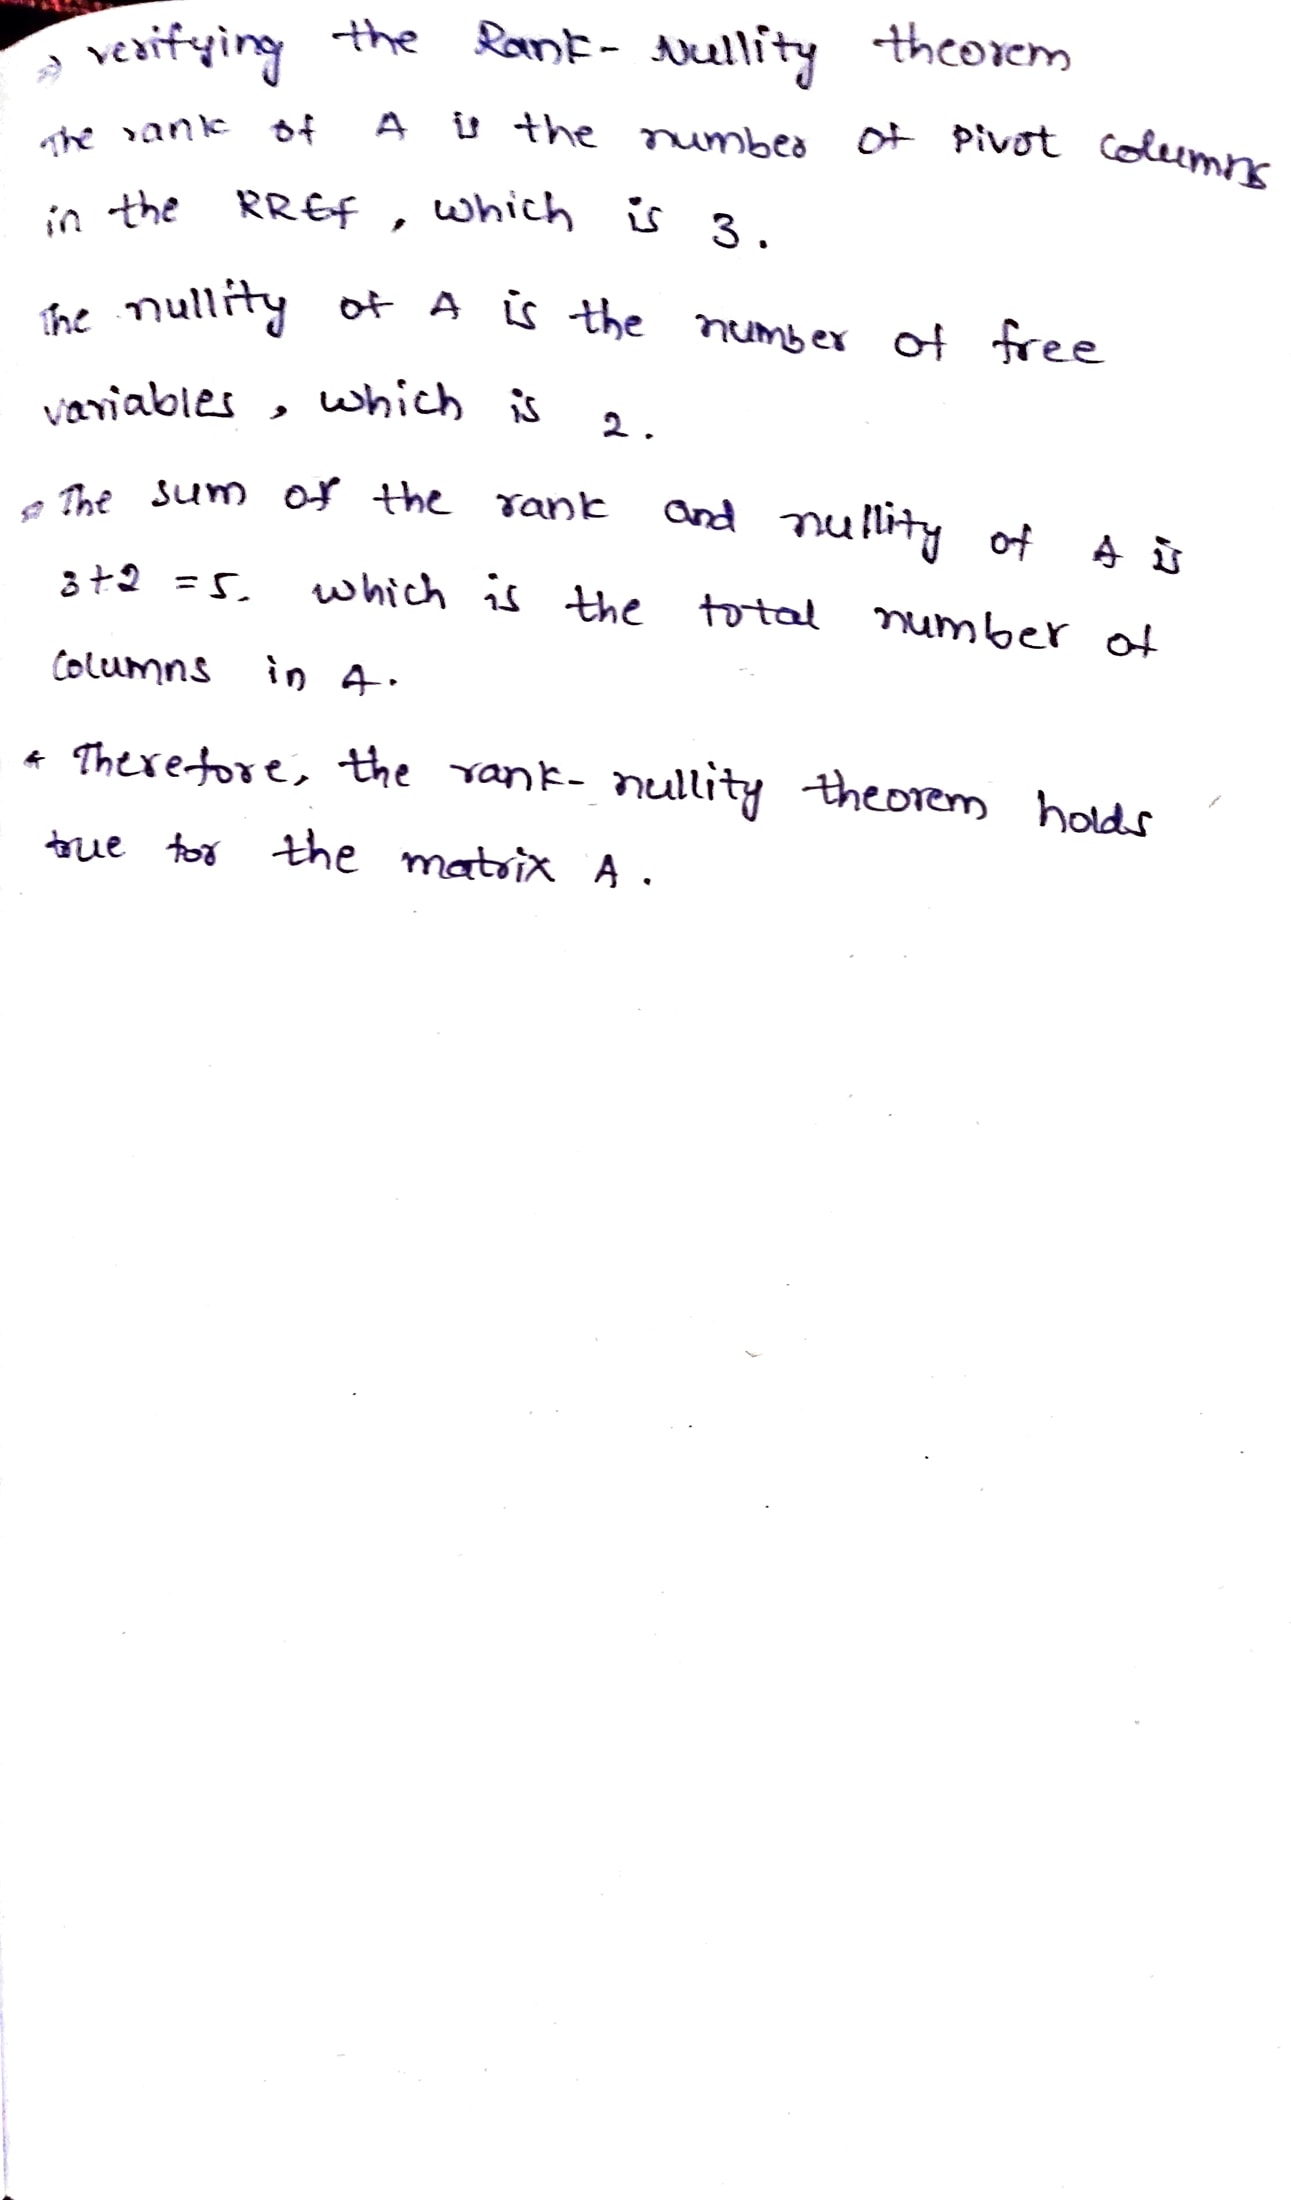 → verifying the Rank- Nullity theorem
The rank of A is the number of pivot columns
in the RREf , which is 3 .
The nullity of A is the number of free
variables , which is 2 .
* The sum of the rank and nullity of A is
3+2 = 5. which is the total number of
columns in A .
* Therefore, the rank- nullity theorem holds
true for the matrix A .